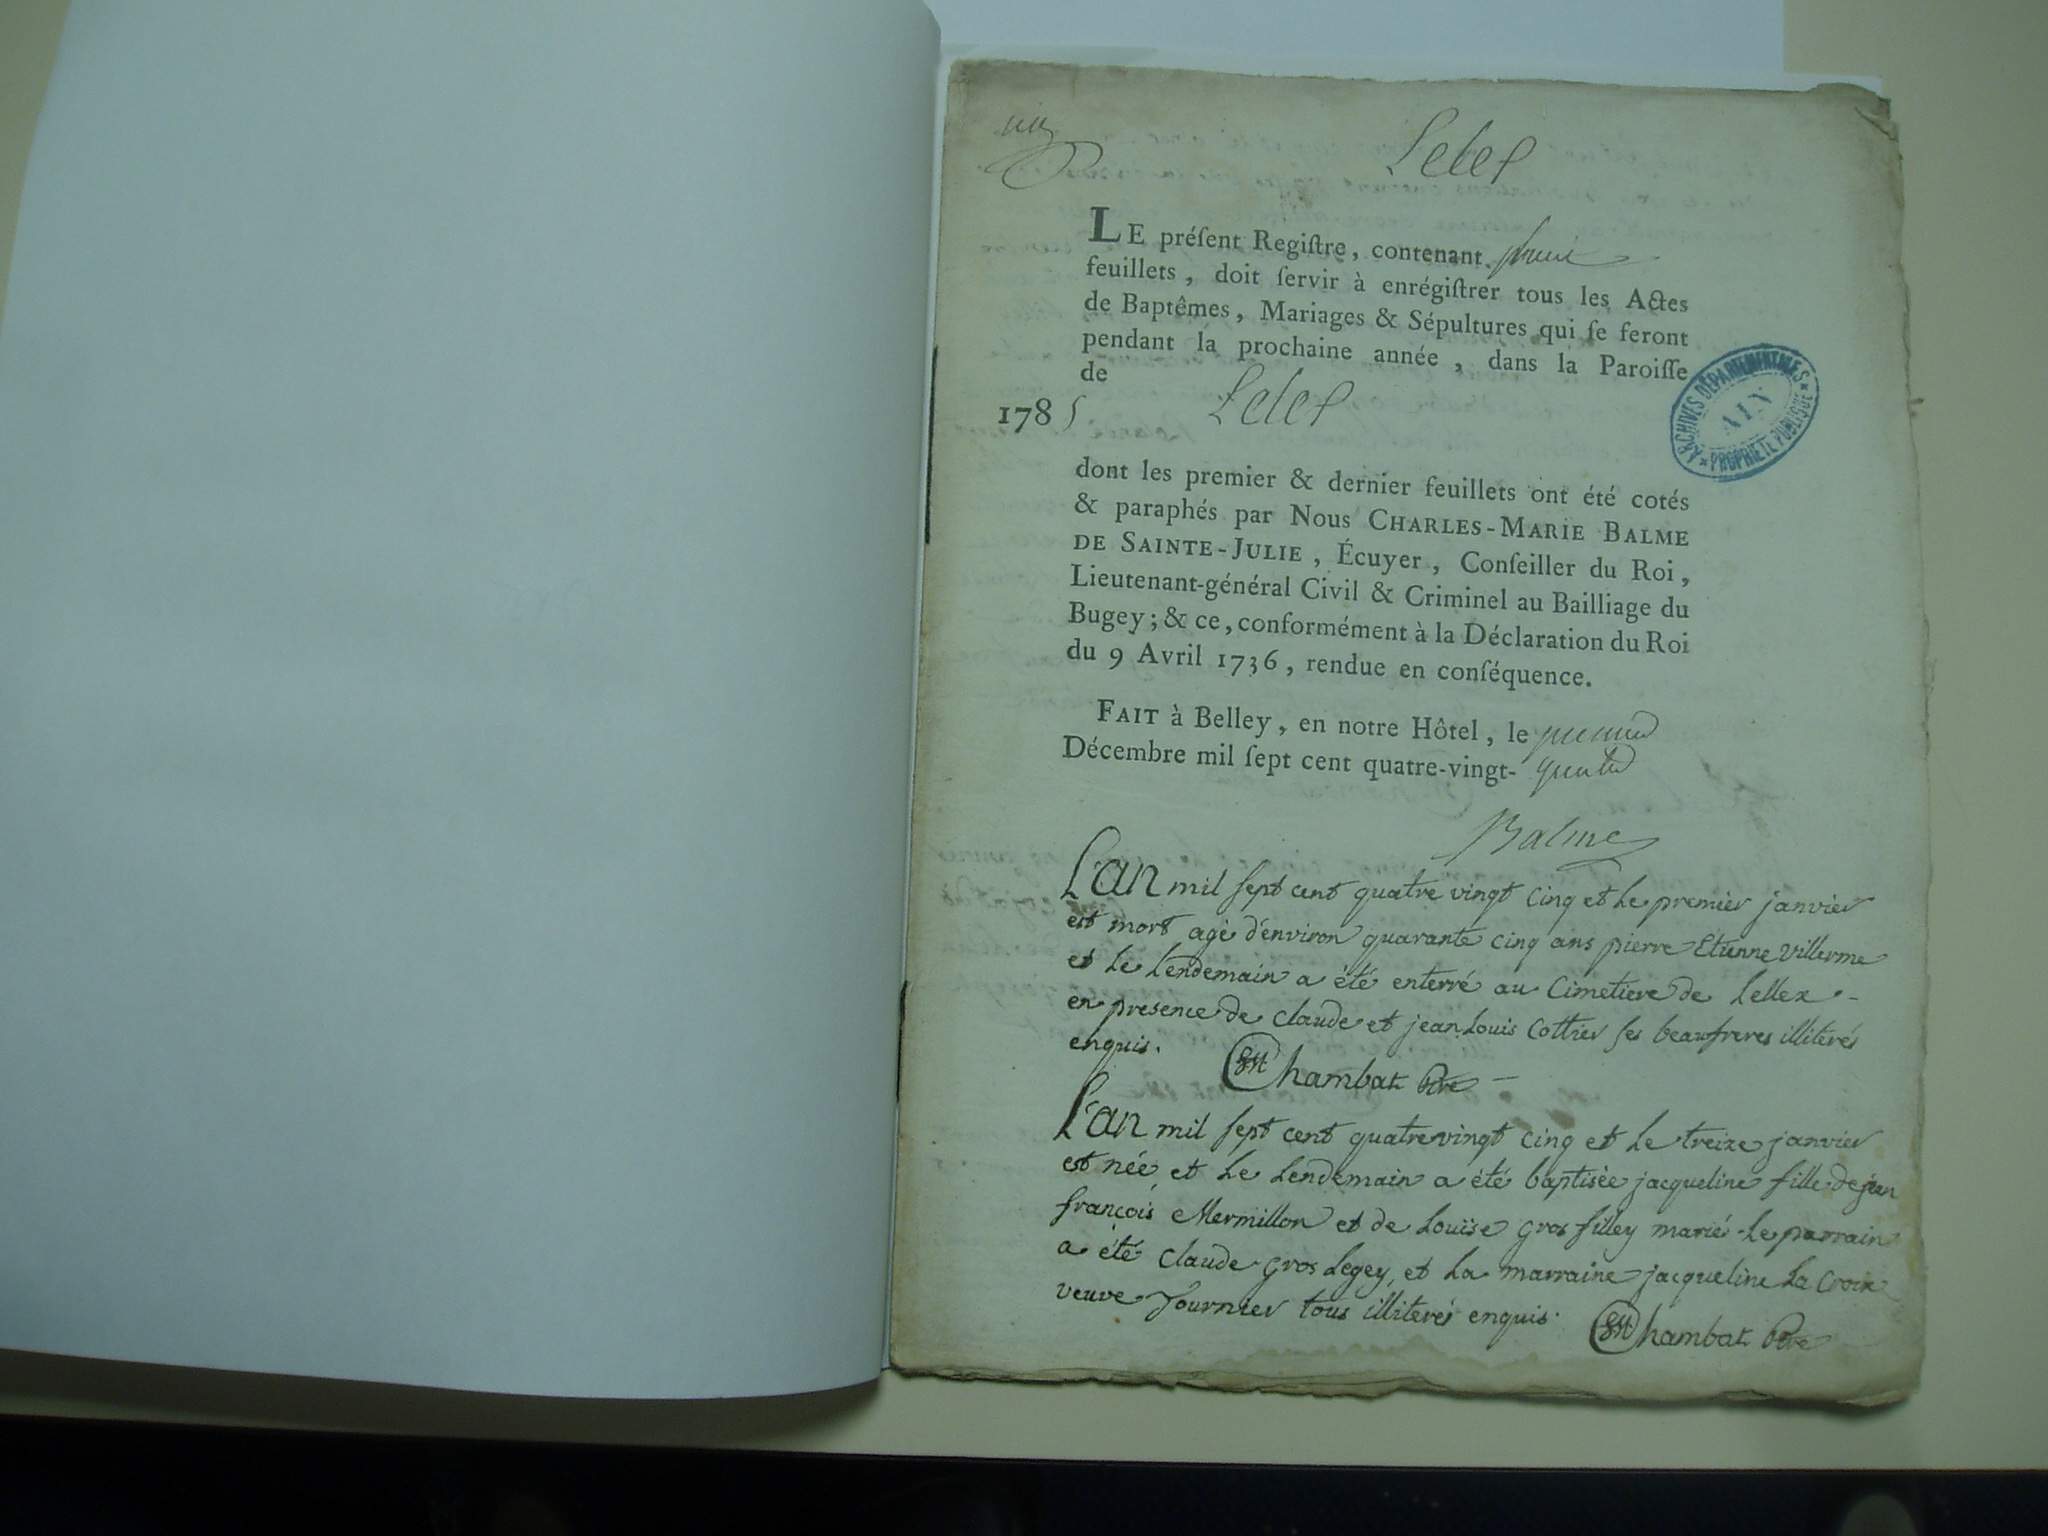 Lelex
LE préſent Regiſtre, contenant
feuillets, doit ſervir à enrégiſtrer tous les Actes
de Baptêmes, Mariages & Sépultures qui ſe feront
pendant la prochaine année, dans la Paroiſſe
de Lelex
1785
ARCHIVES DÉPARTEMENTALES
AIN
PROPRIÉTÉ PUBLIQUE
dont les premier & dernier feuillets ont été cotés
& paraphés par Nous CHARLES-MARIE BALME
DE SAINTE-JULIE, Écuyer, Conſeiller du Roi,
Lieutenant-général Civil & Criminel au Bailliage du
Bugey; & ce, conformément à la Déclaration du Roi
du 9 Avril 1736, rendue en conſéquence.
FAIT à Belley, en notre Hôtel, le premier
Décembre mil ſept cent quatre-vingt- quatre
Balme
L'an mil sept cent quatre vingt cinq et le premier janvier
est mort agé d'environ quarante cinq ans pierre Etienne villerme
et le lendemain a été enterré au Cimetiere de Lellex -
en presence de claude et jean Louis Cottier ses beaufreres illiterés
enquis. Chambat Ptre
L'an mil sept cent quatre vingt cinq et le treize janvier
est née et le lendemain a été baptisée jacqueline fille de jean
françois Mermillon et de Louise gros filley marié le parrain
a été claude gros legey, et la marraine jacqueline la croix
veuve fournier tous illiterés enquis. Chambat Ptre